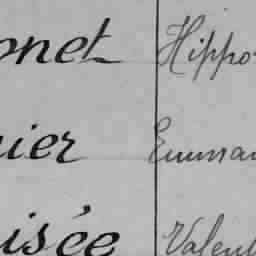 onet Hippo
nier Emman
isée Valent